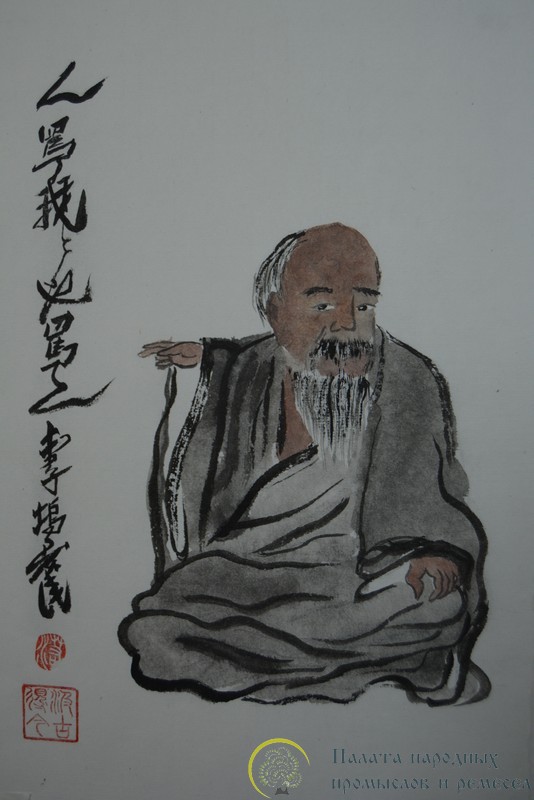 人罵我々也罵人
李
汲古
得今
Палата народных
промыслов и ремесел